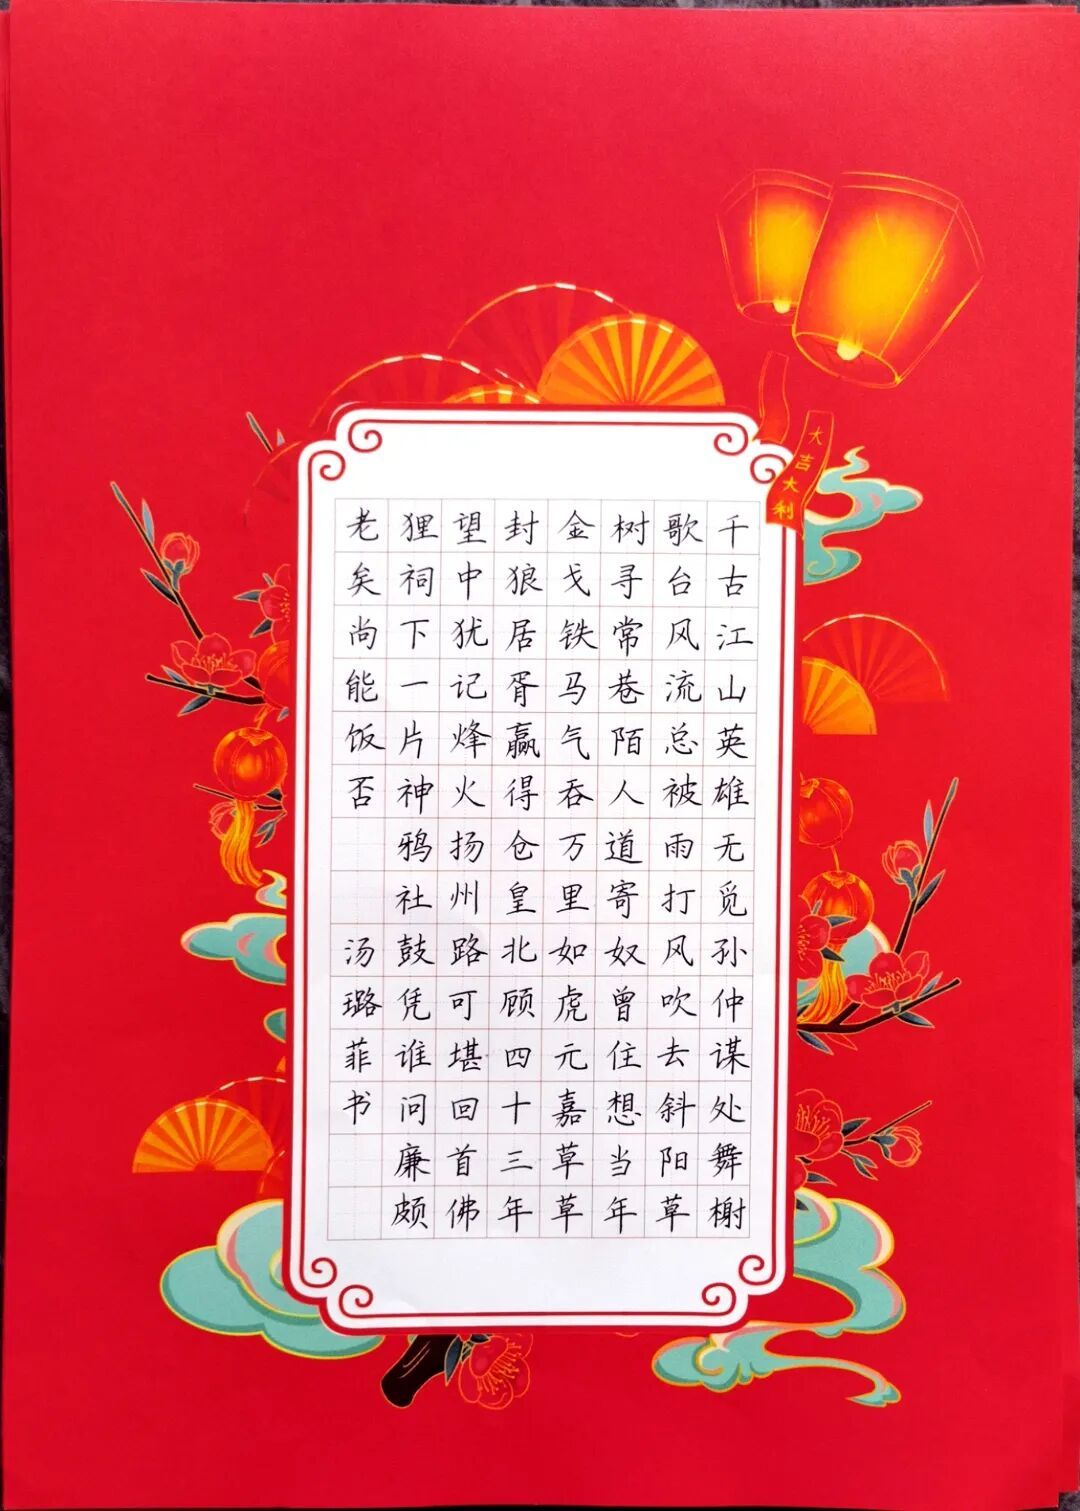 千古江山英雄无觅孙仲谋处舞榭
歌台风流总被雨打风吹去斜阳草
树寻常巷陌人道寄奴曾住想当年
金戈铁马气吞万里如虎元嘉草草
封狼居胥赢得仓皇北顾四十三年
望中犹记烽火扬州路可堪回首佛
狸祠下一片神鸦社鼓凭谁问廉颇
老矣尚能饭否 汤璐菲书
大吉大利